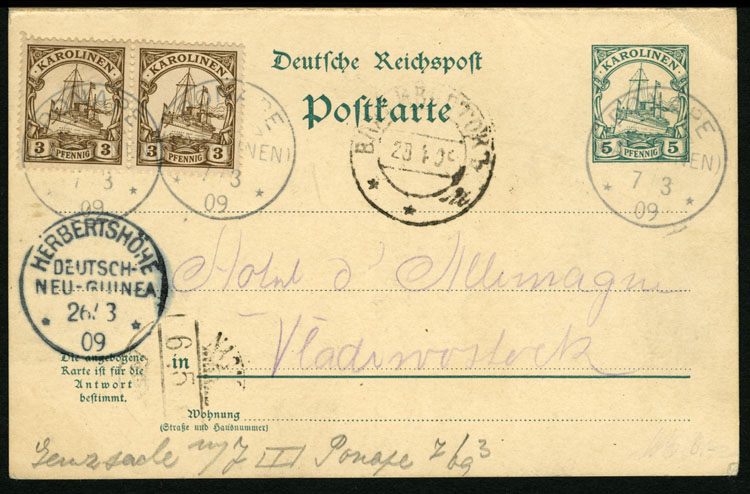 KAROLINEN
3 PFENNIG 3
KAROLINEN
3 PFENNIG 3
Deutsche Reichspost
Postkarte
KAROLINEN
5 PFENNIG 5
7 3
09
7 3
09
7 3
09
HERBERTSHÖHE
DEUTSCH-
NEU-GUINEA
26/3
09
Hotel d'Allemagne
in Vladiwostock
Die angebogene
Karte ist für die
Antwort
bestimmt.
Wohnung
(Straße und Hausnummer)
Ponape 7/3 09